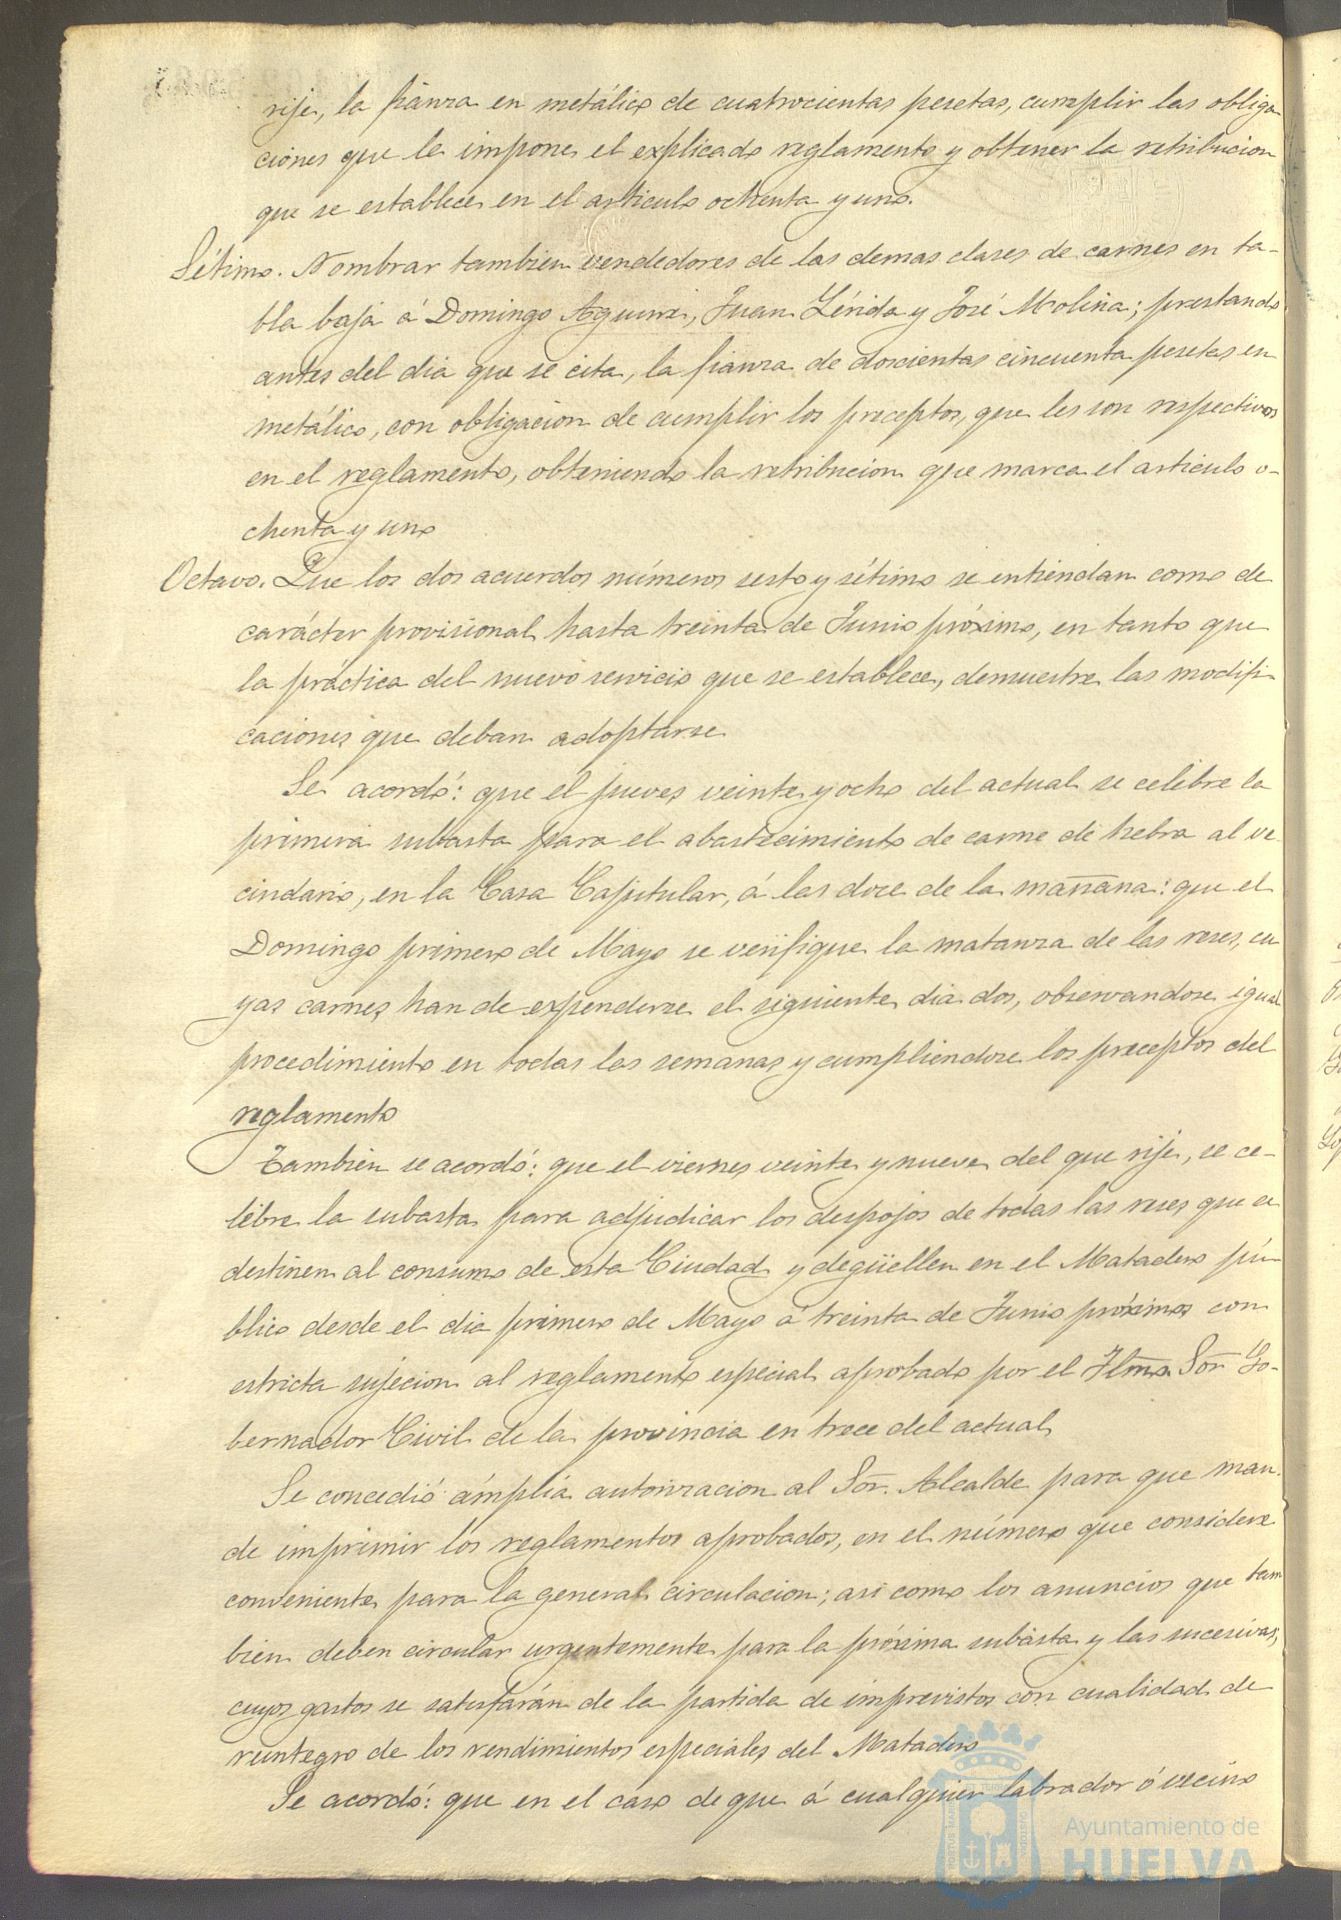 rije, la fianza en metálico de cuatrocientas pesetas, cumplir las obliga
ciones que le impone el explicado reglamento y obtener la retribucion
que se establece en el articulo ochenta y uno.
Sétimo. Nombrar tambien vendedores de las demas clases de carnes en ta-
bla baja á Domingo Aguirre, Juan Lérida y José Molina; prestando
antes del dia que se cita, la fianza de doscientas cincuenta pesetas en
metálico, con obligacion de cumplir los preceptos, que les son respectivos
en el reglamento, obteniendo la retribucion que marca el articulo o-
chenta y uno
Octavo. Que los dos acuerdos números sesto y sétimo se entiendan como de
carácter provisional hasta treinta de Junio próximo, en tanto que
la práctica del nuevo servicio que se establece, demuestre las modifi
caciones que deban adoptarse
Se acordó: que el jueves veinte y ocho del actual se celebre la
primera subasta para el abastecimiento de carne de hebra al ve
cindario, en la Casa Capitular, á las doce de la mañana: que el
Domingo primero de Mayo se verifique la matanza de las reses, cu
yas carnes han de expenderse el siguiente dia dos, observandose igual
procedimiento en todas las semanas y cumpliendose los preceptos del
reglamento
Tambien se acordó: que el viernes veinte y nueve del que rije, se ce-
lebre la subasta para adjudicar los despojos de todas las reses que se
destinen al consumo de esta Ciudad y degüellen en el Matadero pú-
blico desde el dia primero de Mayo á treinta de Junio próximos con
estricta sujecion al reglamento especial aprobado por el Iltmo. Sor Go-
bernador Civil de la provincia en trece del actual
Se concedió ámplia autorizacion al Sor. Alcalde para que man-
de imprimir los reglamentos aprobados, en el número que considere
conveniente para la general circulacion; asi como los anuncios que tam
bien deben circular urgentemente para la próxima subasta y las sucesivas,
cuyos gastos se satisfarán de la partida de imprevistos con cualidad de
reintegro de los rendimientos especiales del Matadero
Se acordó: que en el caso de que á cualquier labrador ó vecino
Ayuntamiento de
HUELVA